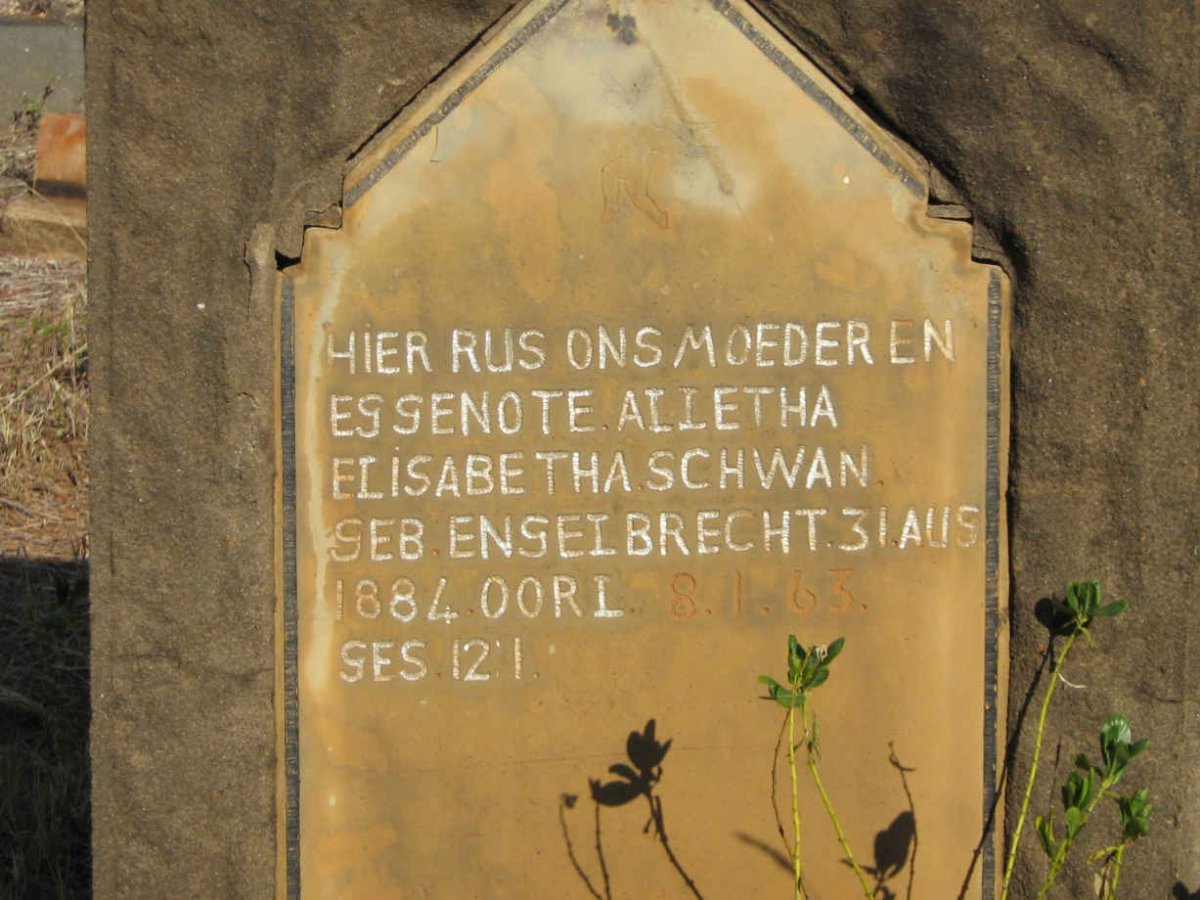 HIER RUS ONS MOEDER EN
EGGENOTE. ALLETHA
ELISABETHA. SCHWAN.
GEB. ENGELBRECHT. 31. AUG
1884. OORL. 8. 1. 63.
GES. 12'1.